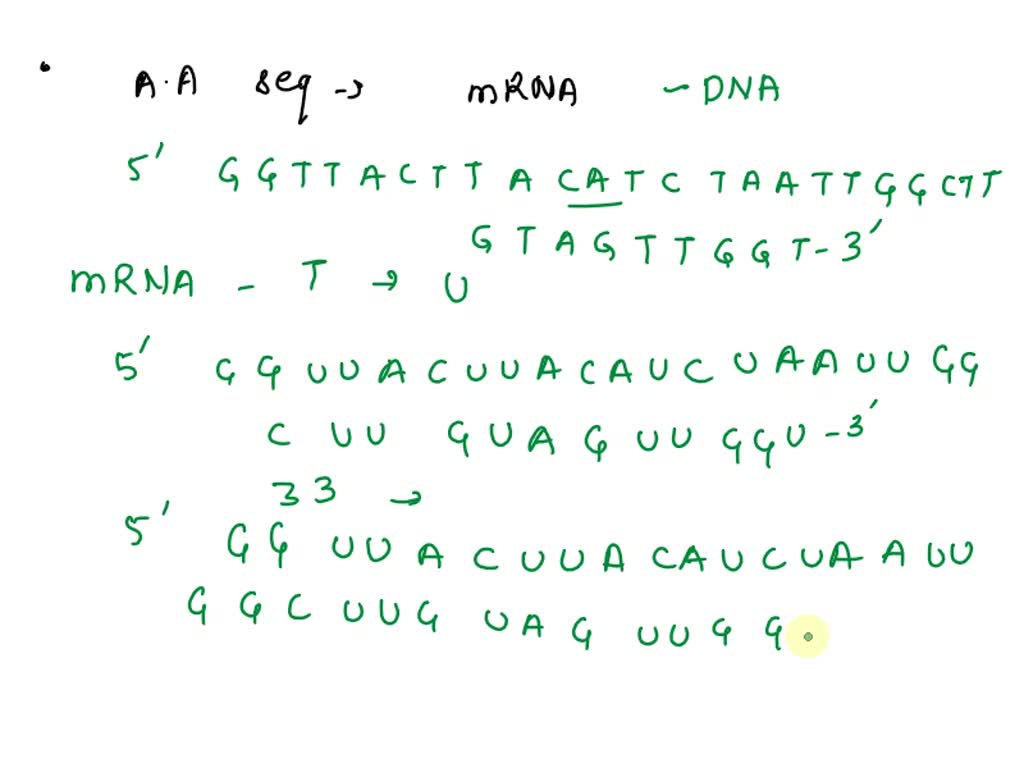 A.A seq → mRNA - DNA
5' G G T T A C T T A C A T C T A A T T G G C T T
G T A G T T G G T - 3'
mRNA - T → U
5' G G U U A C U U A C A U C U A A U U G G
C U U G U A G U U G G U - 3'
33 →
5' G G U U A C U U A C A U C U A A U U
G G C U U G U A G U U G G